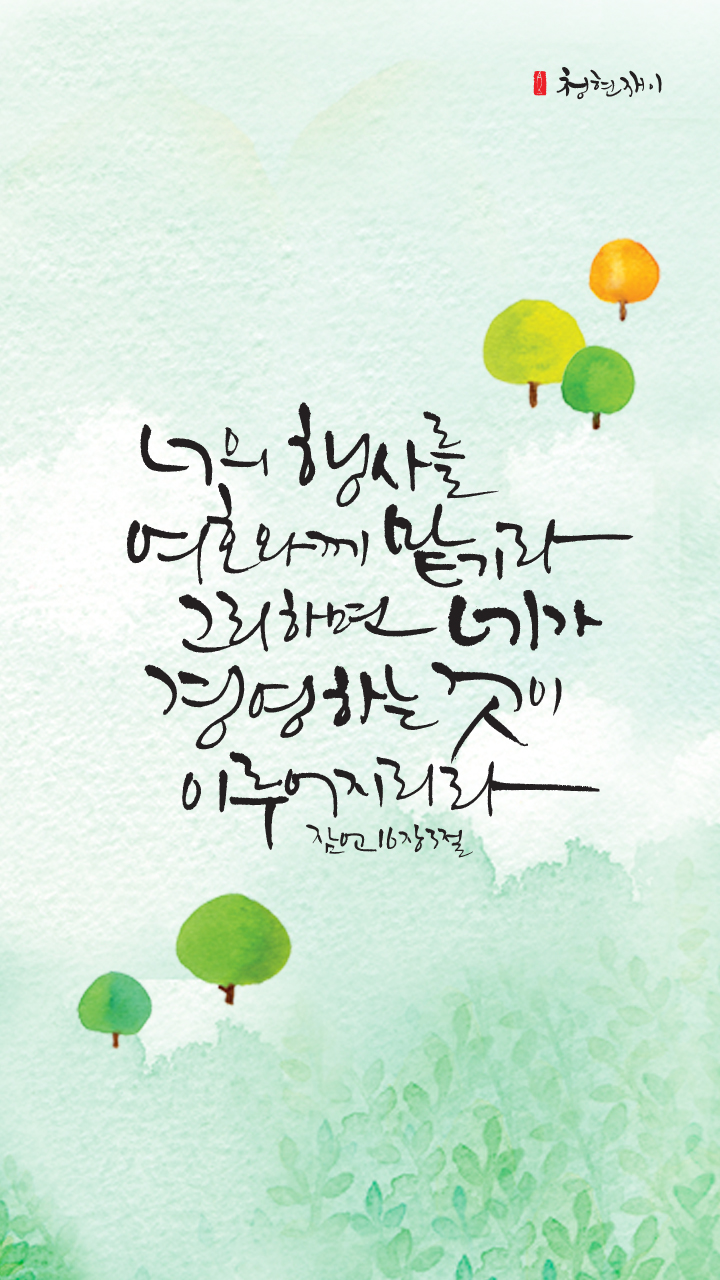 청현재이
너의 행사를
여호와께 맡기라
그리하면 네가
경영하는 것이
이루어지리라
잠언 16장 3절